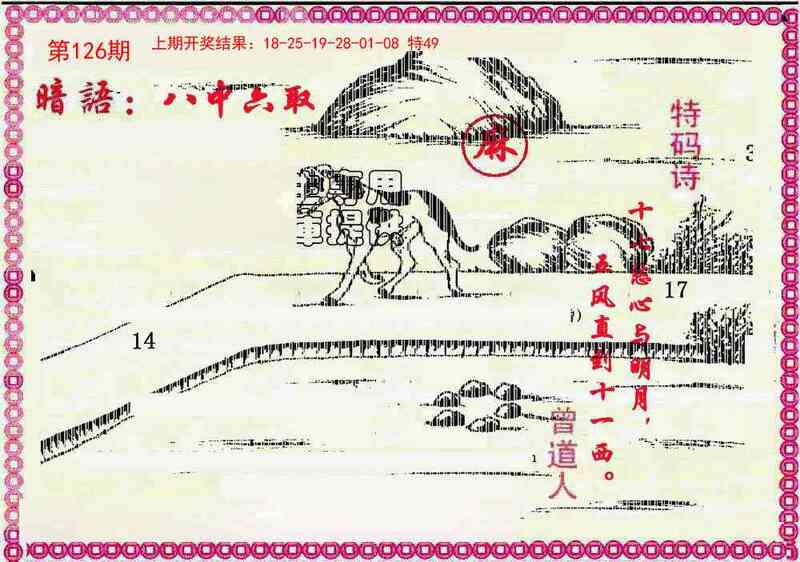 第126期
上期开奖结果：18-25-19-28-01-08 特49
暗語：八中六取
麻
特码诗
3
十
心与明月，
五风直到十一西。
17
14
1
曾道人